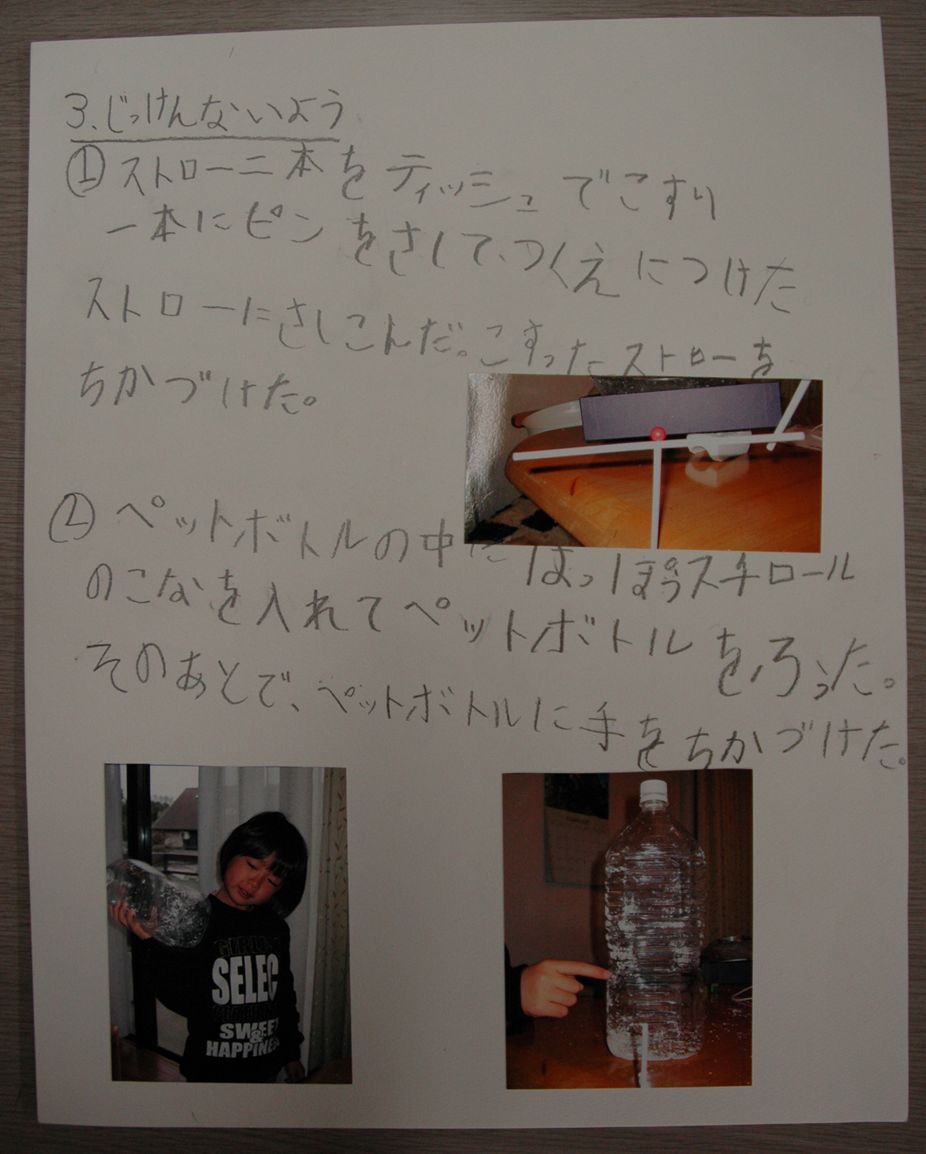 3、じっけんないよう
①ストロー二本をティッシュでこすり
一本にピンをさして、つくえにつけた
ストローにさしこんだ。こすったストローを
ちかづけた。
②ペットボトルの中にはっぽうスチロール
のこなを入れてペットボトルをふった。
そのあとで、ペットボトルに手をちかづけた。
SELEC
SWEET
&
HAPPINESS